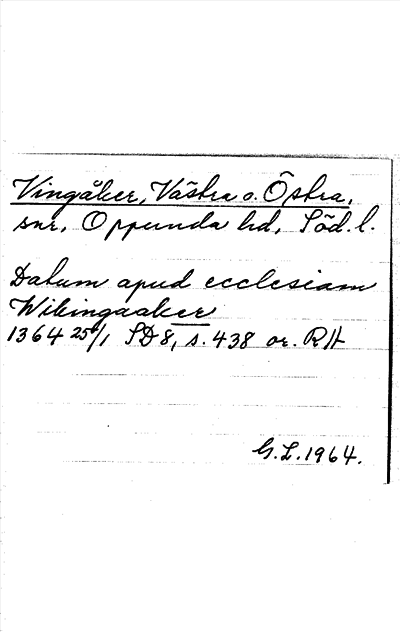 Vingåker, Västra o. Östra,
snr, Oppunda hd, Söd. l.
Datum apud ecclesiam
Wikingaaker
1364 25/1 SD 8, s. 438 or. RA
G.L. 1964.